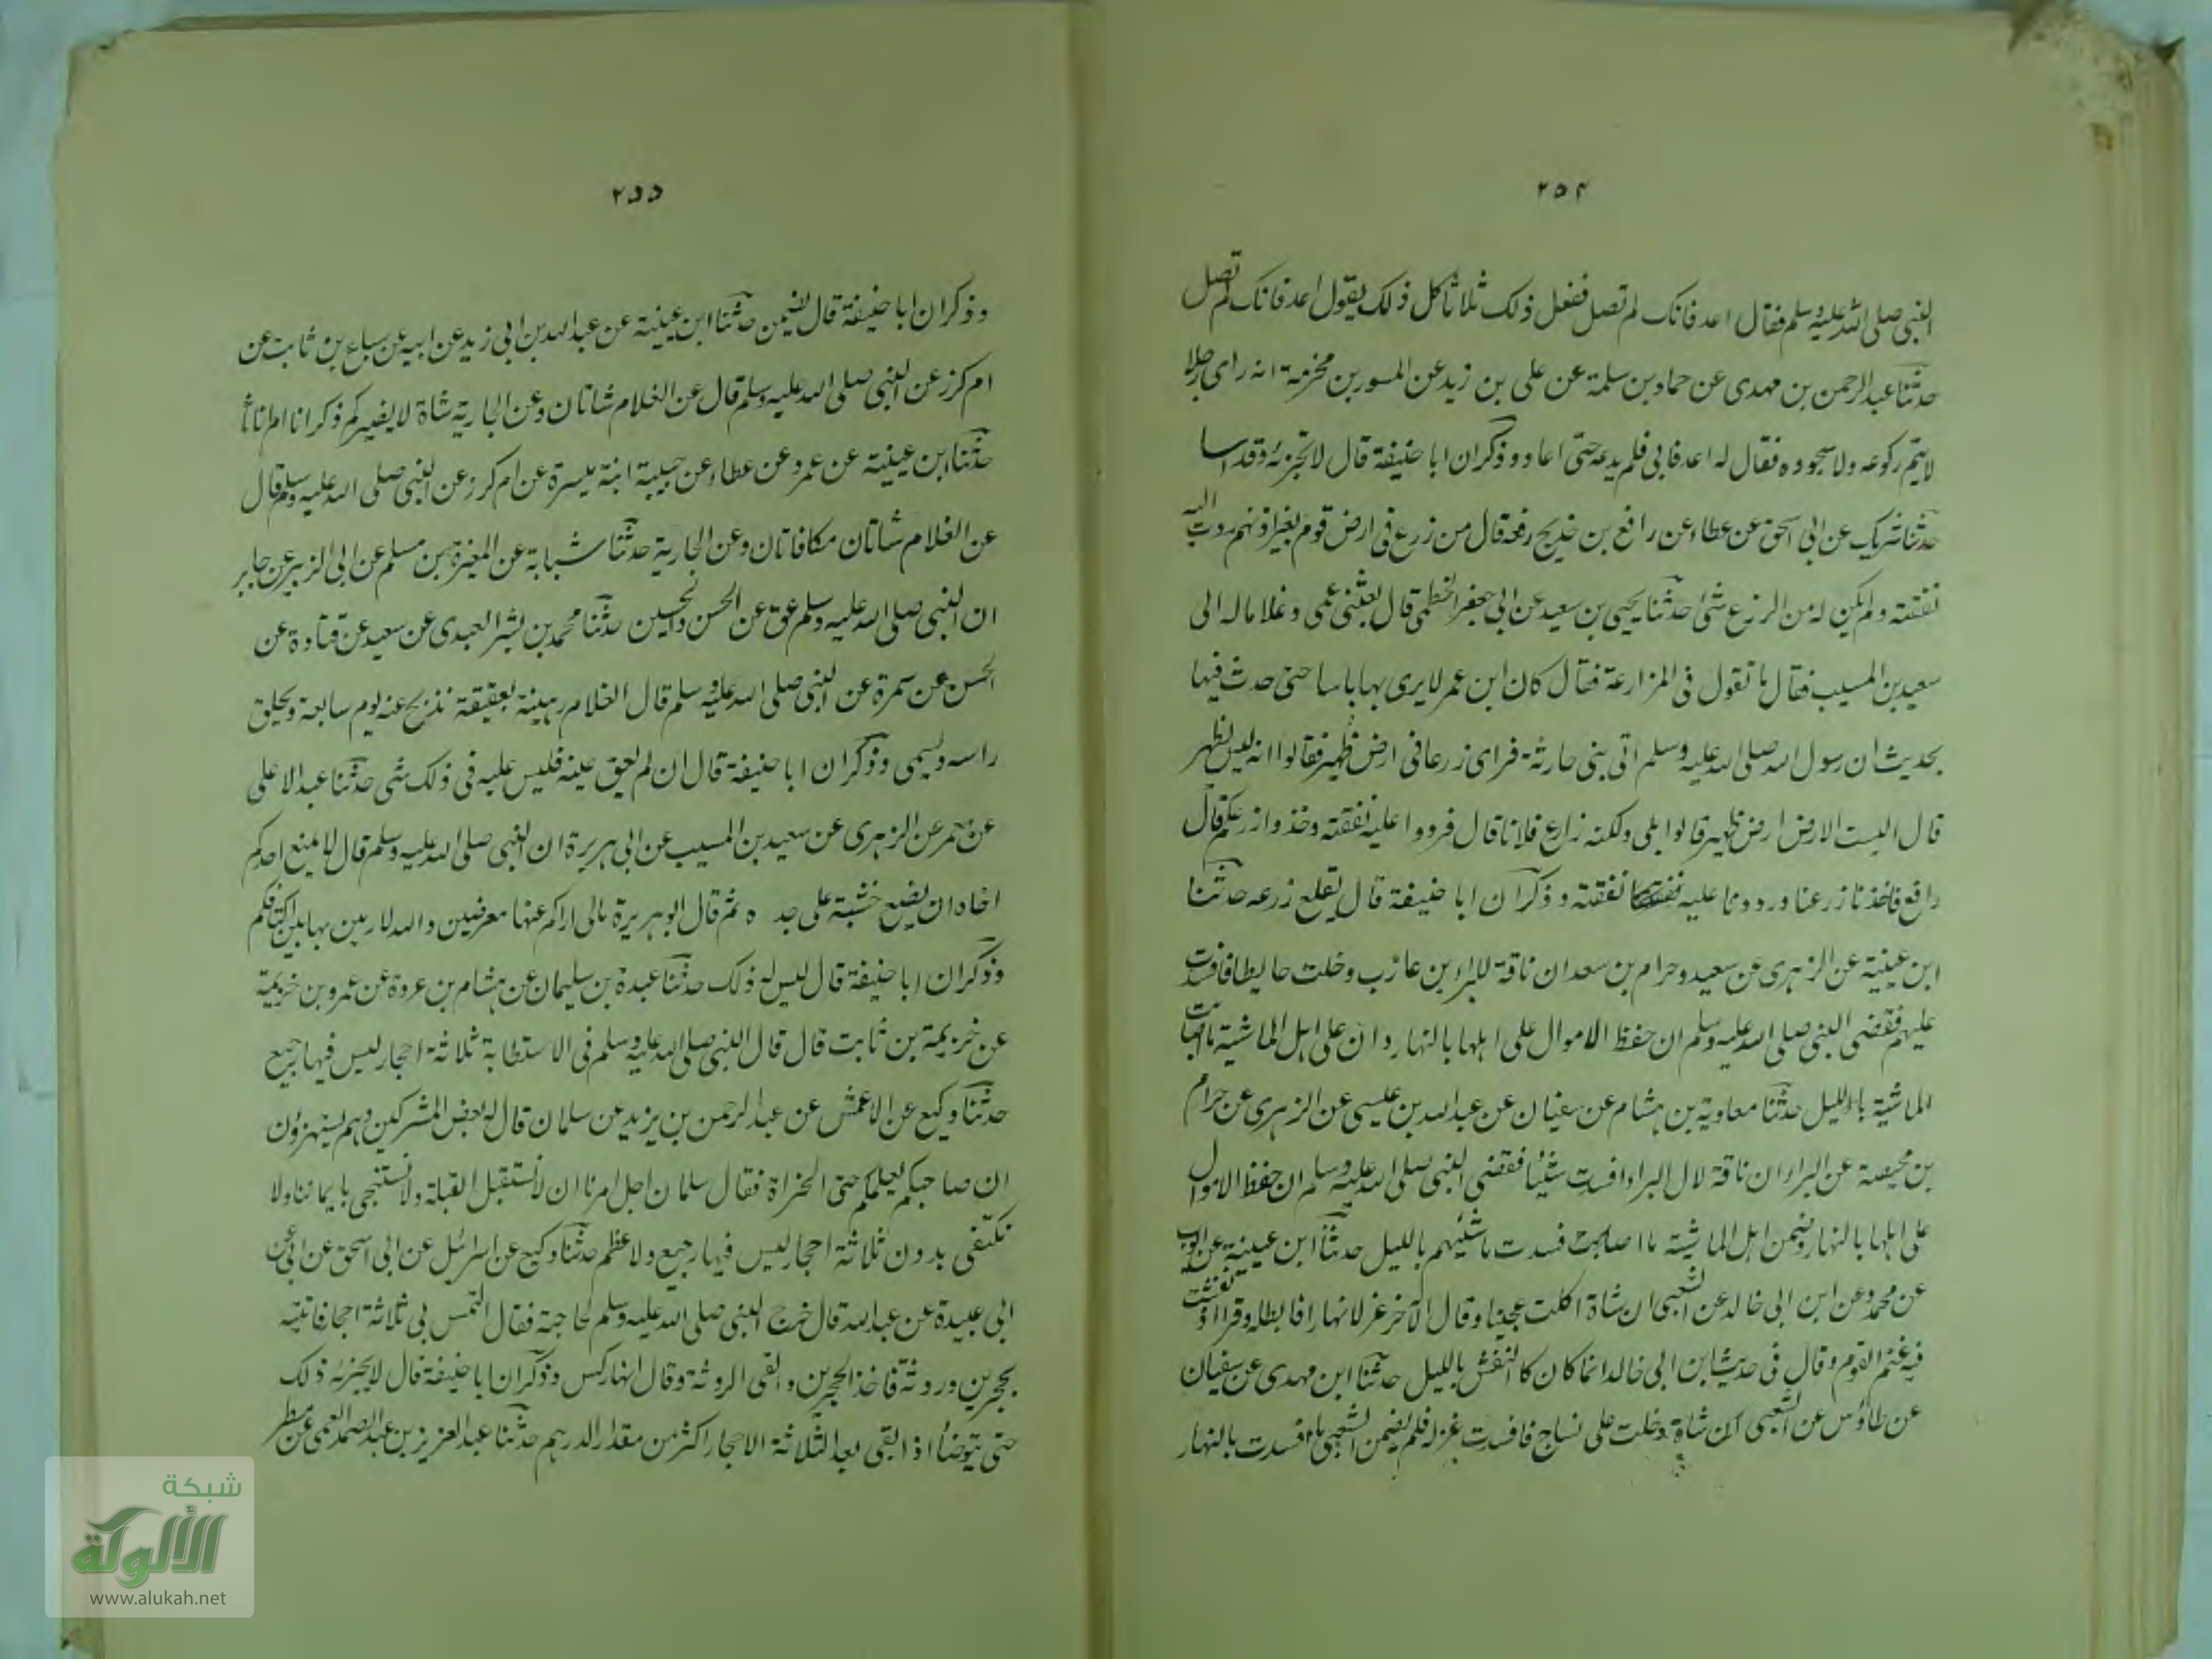 ٢٥٤
النبى صلى الله عليه وسلم فقال اعد فانك لم تصل ففعل ذلك ثلاثا كل ذلك يقول اعد فانك لم تصل
حدثنا عبد الرحمن بن مهدى عن حماد بن سلمة عن على بن زيد عن المسور بن مخرمة انه راى رجلا
لا يتم ركوعه ولا سجوده فقال له اعد فابى فلم يدعه حتى اعاد وذكر ان ابا حنيفة قال لا تجزئه وقد اسا
حدثنا شريك عن ابى اسحق عن عطاء عن رافع بن خديج رفعه قال من زرع فى ارض قوم بغير اذنهم ردت اليه
نفقته ولم يكن له من الزرع شئ حدثنا يحيى بن سعيد عن ابى جعفر الخطمى قال بعثنى عمى وغلاما له الى
سعيد بن المسيب فقال ما تقول فى المزارعة فقال كان ابن عمر لا يرى بها باسا حتى حدث فيها
بحديث ان رسول الله صلى الله عليه وسلم اتى بنى حارثة فراى زرعا فى ارض ظهير فقالوا انه ليس لظهير
قال اليست الارض ارض ظهير قالوا بلى ولكنه زارع فلانا قال فردوا عليه نفقته وخذوا زرعكم قال
رافع فاخذنا زرعنا ورددنا عليه نفقته وذكر ان ابا حنيفة قال يقلع زرعه حدثنا
ابن عيينة عن الزهرى عن سعيد وحرام بن سعد ان ناقة للبراء بن عازب دخلت حايطا فافسدت
عليهم فقضى النبى صلى الله عليه وسلم ان حفظ الاموال على اهلها بالنهار وان على اهل الماشية ما اصابت
الماشية بالليل حدثنا معاوية بن هشام عن سفيان عن عبد الله بن عيسى عن الزهرى عن حرام
بن محيصة عن البراء ان ناقة لال البراء افسدت شيئا فقضى النبى صلى الله عليه وسلم ان حفظ الاموال
على اهلها بالنهار وضمن اهل الماشية ما افسدت ماشيتهم بالليل حدثنا ابن عيينة عن ايوب
عن محمد وعن ابن ابى خالد عن الشعبى ان شاة اكلت عجينا وقال الاخر غزلا نهارا فابطله وقرا اذ نفشت
فيه غنم القوم وقال فى حديث ابن ابى خالد انما كان النفش بالليل حدثنا ابن مهدى عن سفيان
عن طاؤس عن الشعبى ان شاة دخلت على نساج فافسدت غزله فلم يضمن الشعبى ما افسدت بالنهار
٢٥٥
وذكر ان ابا حنيفة قال يضمن حدثنا ابن عيينة عن عبد الله بن ابى زيد عن ابيه عن سباع بن ثابت عن
ام كرز عن النبى صلى الله عليه وسلم قال عن الغلام شاتان وعن الجارية شاة لا يضيركم ذكرانا ام اناثا
حدثنا ابن عيينة عن عمرو عن عطاء عن حبيبة ابنة ميسرة عن ام كرز عن النبى صلى الله عليه وسلم قال
عن الغلام شاتان مكافاتان وعن الجارية حدثنا شبابة عن المغيرة بن مسلم عن ابى الزبير عن جابر
ان النبى صلى الله عليه وسلم عق عن الحسن والحسين حدثنا محمد بن بشر العبدى عن سعيد عن قتادة عن
الحسن عن سمرة عن النبى صلى الله عليه وسلم قال الغلام رهينة بعقيقة تذبح عنه يوم سابعة ويحلق
راسه ويسمى وذكر ان ابا حنيفة قال ان لم يعق عنه فليس عليه فى ذلك شى حدثنا عبد الاعلى
عن معمر عن الزهرى عن سعيد بن المسيب عن ابى هريرة ان النبى صلى الله عليه وسلم قال لا يمنع احدكم
اخاه ان يضع خشبة على جد ه ثم قال ابو هريرة مالى اراكم عنها معرضين والله لارمين بها بين اكتافكم
وذكر ان ابا حنيفة قال ليس له ذلك حدثنا عبدة بن سليمان عن هشام بن عروة عن عمرو بن خزيمة
عن خزيمة بن ثابت قال قال النبى صلى الله عليه وسلم فى الاستطابة ثلاثة احجار ليس فيها رجيع
حدثنا وكيع عن الاعمش عن عبد الرحمن بن يزيد عن سلمان قال له بعض المشركين وهم يستهزؤن
ان صاحبكم يعلمكم حتى الخراة فقال سلمان اجل امرنا ان لا نستقبل القبلة ولا نستنجى بايماننا ولا
نكتفى بدون ثلاثة احجار ليس فيها رجيع ولا عظم حدثنا وكيع عن اسرائيل عن ابى اسحق عن
ابى عبيدة عن عبد الله قال خرج النبى صلى الله عليه وسلم لحاجة فقال التمس لى ثلاثة احجار فاتيته
بحجرين وروثة فاخذ الحجرين والقى الروثة وقال انها ركس وذكر ان ابا حنيفة قال لا يجزئه ذلك
حتى يتوضأ اذا بقى بعد الثلاثة الاحجار اكثر من مقدار الدرهم حدثنا عبد العزيز بن عبد الصمد العمى عن مطر
شبكة
الألوكة
www.alukah.net